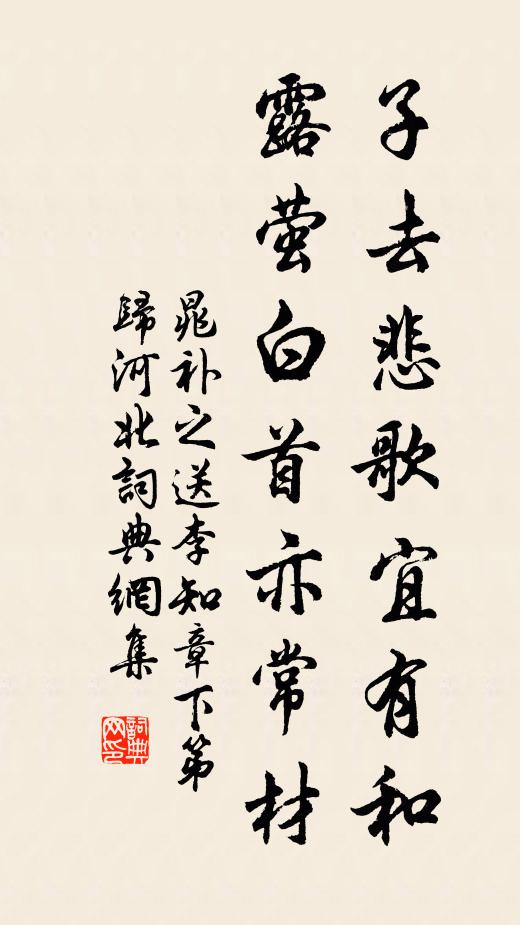 子去悲歌宜有和
露萤白首亦常材
晁补之送李知章下第
歸河北詞典網集
詞典网印